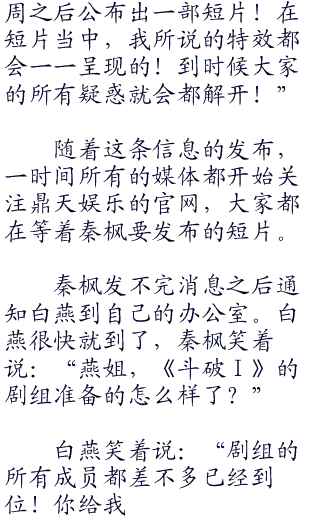 周之后公布出一部短片！在
短片当中，我所说的特效都
会一一呈现的！到时候大家
的所有疑惑就会都解开！”
随着这条信息的发布，
一时间所有的媒体都开始关
注鼎天娱乐的官网，大家都
在等着秦枫要发布的短片。
秦枫发不完消息之后通
知白燕到自己的办公室。白
燕很快就到了，秦枫笑着
说：“燕姐，《斗破Ⅰ》的
剧组准备的怎么样了？”
白燕笑着说：“剧组的
所有成员都差不多已经到
位！你给我